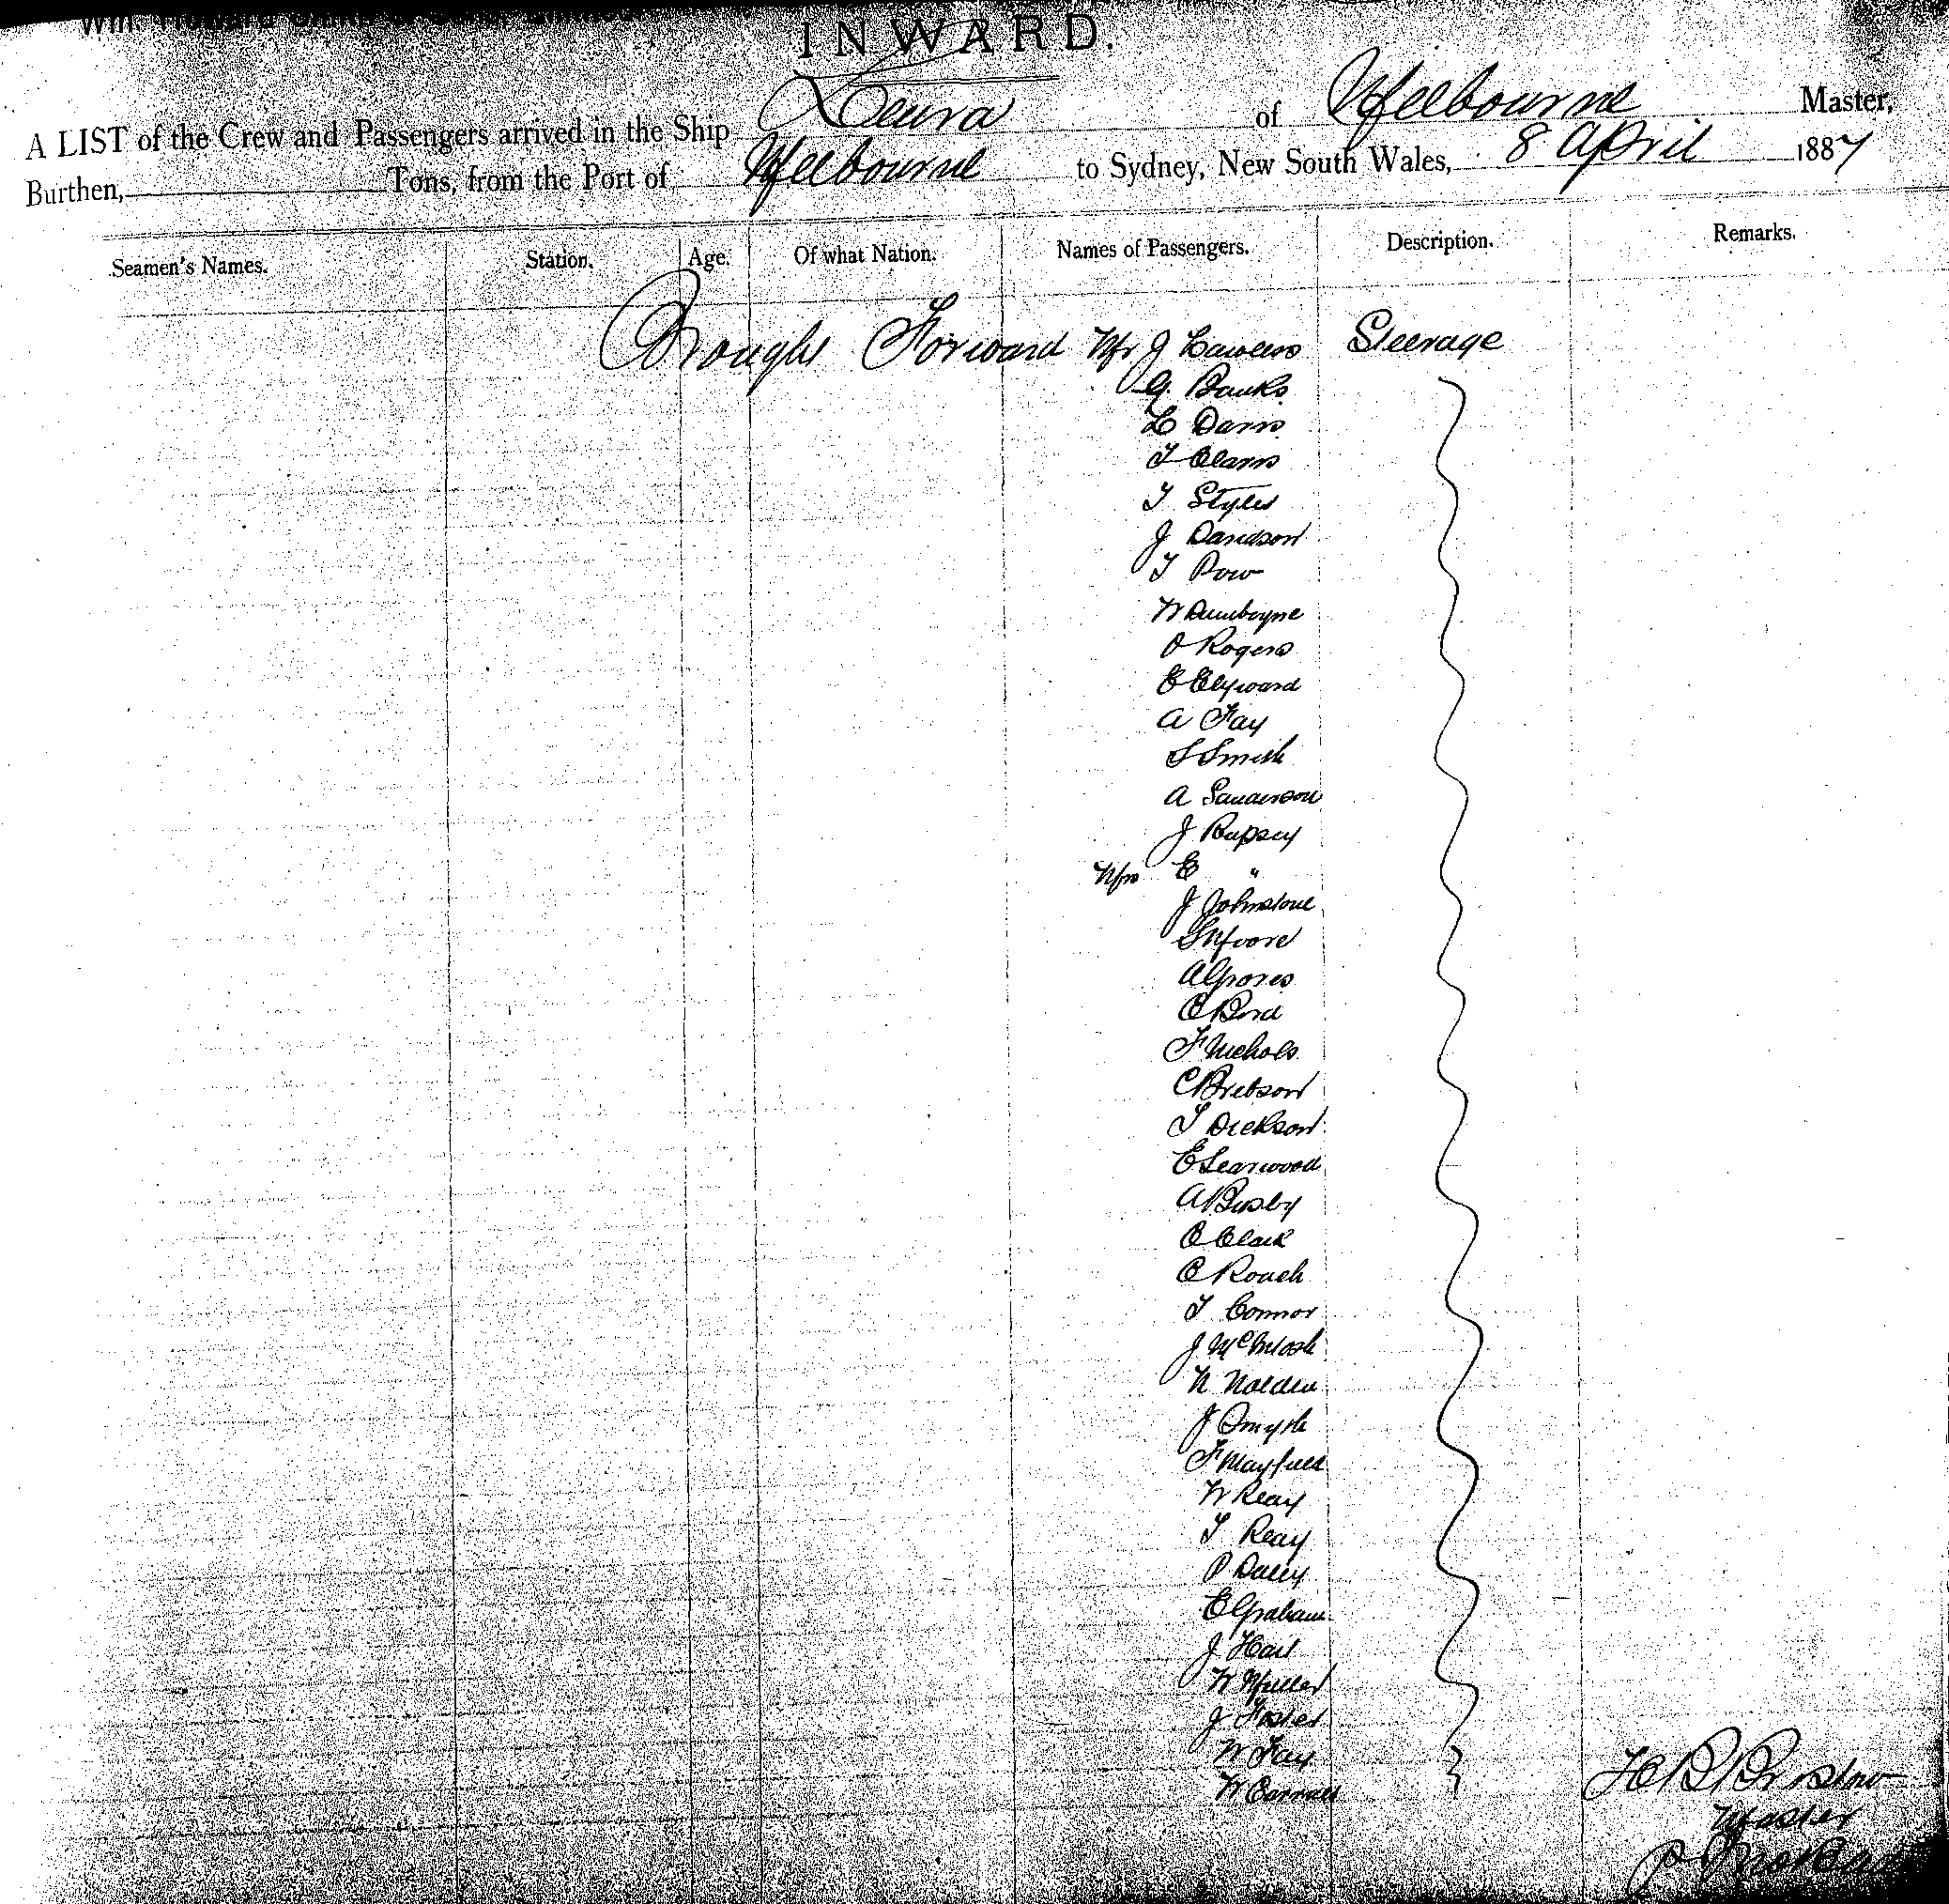 INWARD.
A LIST of the Crew and Passengers arrived in the Ship Leura of Melbourne Master,
Burthen, Tons, from the Port of Melbourne to Sydney, New South Wales, 8 April 1887
Seamen's Names. Station. Age. Of what Nation. Names of Passengers. Description. Remarks.
Brought Forward Mr J Steerage
G. Banks
L Davis
T
T Styles
J Davidson
T Pow
W Dunboyne
O Rogers
E Elyward
A Fay
S Smith
A Sanderson
J Rapsey
Mrs E "
J Johnstone
S Moore
A
C Bird
F Nichols
C
T Dickson
E Learwood
A Busby
C Clark
C Roach
T Connor
J McIntosh
N
J Smyth
F Mayfield
W Reay
T Reay
P Daley
E Graham
J
W Miller
J Foster
W Fay
W
H B Bristow
Master